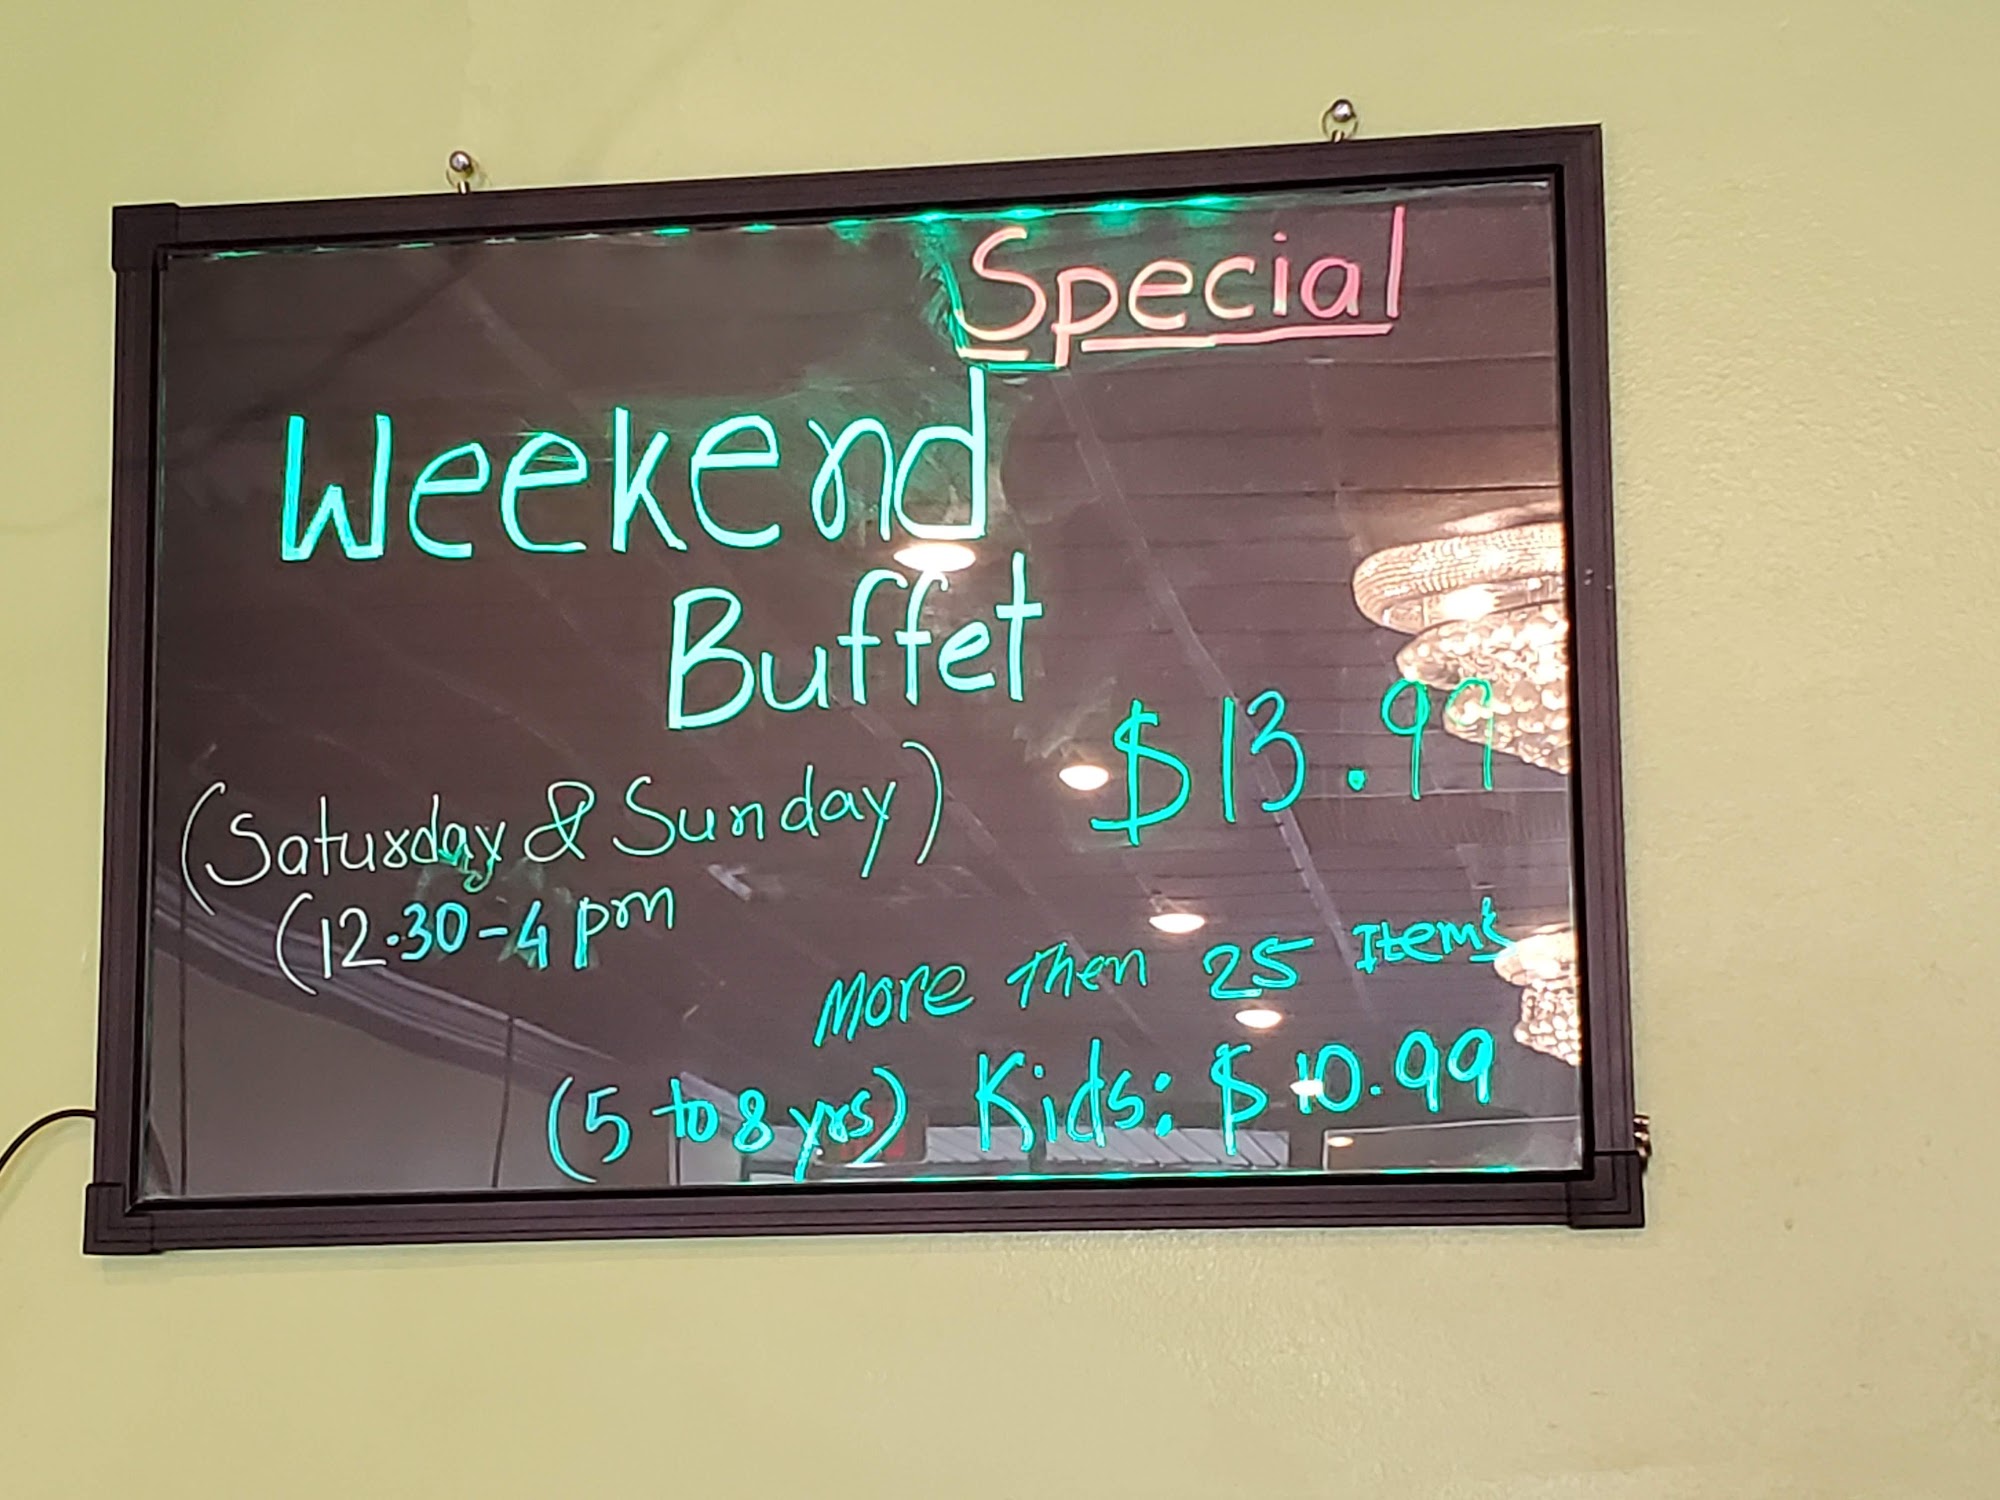 Special
Weekend
Buffet
$13.99
(Saturday & Sunday)
(12.30-4 pm
More Then 25 Items
(5 to 8 yrs) Kids: $10.99